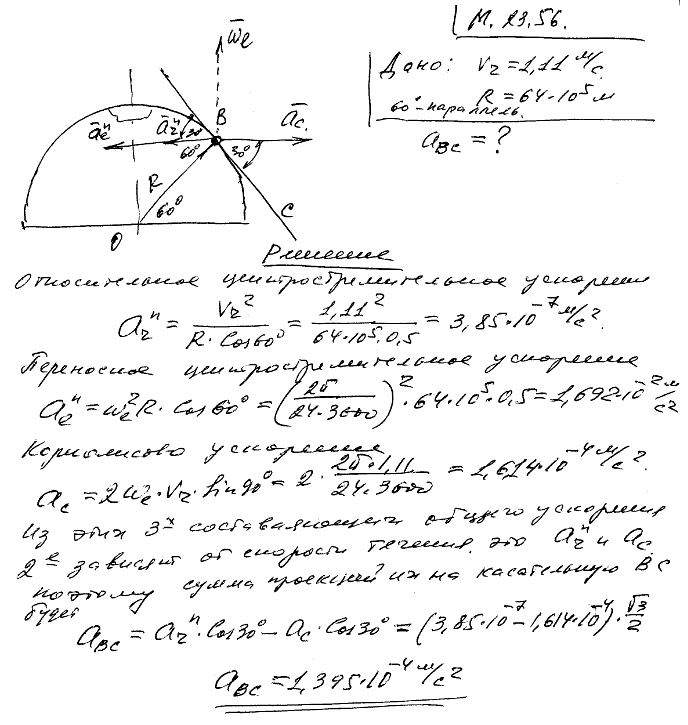 М. 23.56.
Дано: Vr = 1,11 м/с
R = 64·10⁵ м
60°-параллель.
aBC = ?
ω̄e
B
āc
āeⁿ
ārⁿ
30°
60°
30°
R
60°
C
O
Решение
Относительное центростремительное ускорение
arⁿ = Vr²/(R·Cos60°) = 1,11²/(64·10⁵·0,5) = 3,85·10⁻⁷ м/с².
Переносное центростремительное ускорение
aeⁿ = ωe²R·Cos60° = (2π/(24·3600))²·64·10⁵·0,5 = 1,692·10⁻² м/с²
Кориолисово ускорение
ac = 2ωe·Vr·Sin90° = 2·(2π·1,11)/(24·3600) = 1,614·10⁻⁴ м/с².
Из этих 3х составляющих общего ускорения
2е зависят от скорости течения. это arⁿ и ac
поэтому сумма проекций их на касательную BC
будет
aBC = arⁿ·Cos30° − ac·Cos30° = (3,85·10⁻⁷ − 1,614·10⁻⁴)·√3/2
aBC = 1,395·10⁻⁴ м/с²